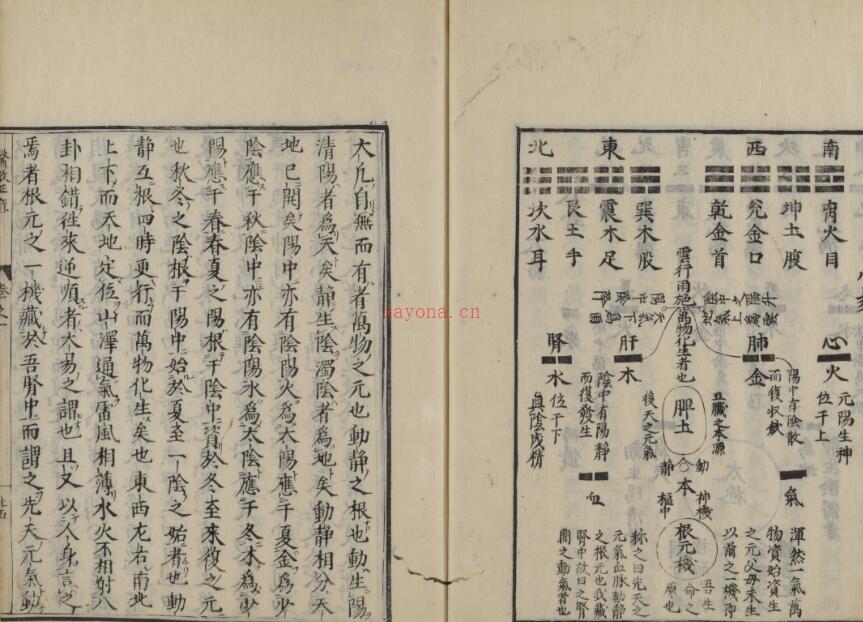 南
西
東
北
离火目
坤土腹
兌金口
乾金首
巽木股
震木足
艮土手
坎水耳
雲行雨施萬物化生者也
心火
元陽生神
位于上
肺金
陽中有陰散
而復收斂
肝木
陰中有陽靜
而復發生
腎水
位于下
真陰成精
脾土
五臟之本源
後天之元氣
氣
血
動
靜
本
神機
樞中
根元機
渾然一氣萬
物資始資生
之元父母未生
以前之一機即
吾生
命之
原也
称之曰先天之
元氣血脉動靜
之根元也我藏
腎中故曰之腎
間之動氣者也
大凡自無而有者萬物之元也動靜之根也動生陽
清陽者爲天矣靜生陰濁陰者爲地矣動靜相分天
地已開矣陽中亦有陰陽火爲太陽應于夏金爲少
陰應于秋陰中亦有陰陽水爲太陰應于冬木爲少
陽應于春春夏之陽根于陰中資於冬至來復之元
也秋冬之陰根于陽中始於夏至一陰之始者也動
靜互根四時更行而萬物化生矣也東西左右南北
上下而天地定位山澤通氣雷風相薄水火不相射八
卦相錯往來逆順者太易之謂也且又以人身言之
焉者根元之一機藏於吾腎中而謂之先天元氣動
卷之一
nayona.cn